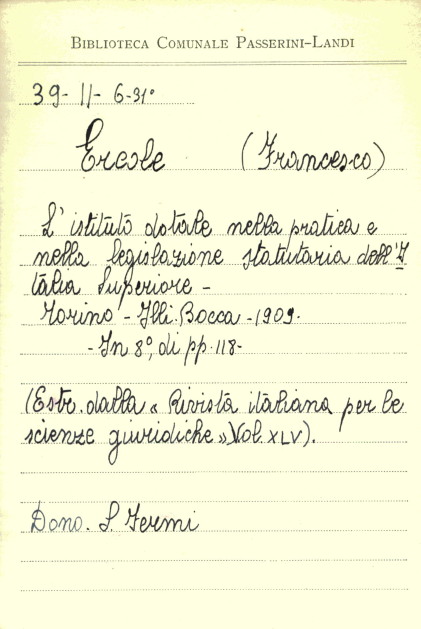 BIBLIOTECA COMUNALE PASSERINI-LANDI
39- II- 6-31°
Ercole (Francesco)
L' istituto dotale nella pratica e
nella legislazione statutaria dell'I
talia Superiore -
Torino - Flli. Bocca - 1909.
- In 8°, di pp. 118-
(Estr. dalla « Rivista italiana per le
scienze giuridiche » Vol. XLV).
Dono. S. Fermi